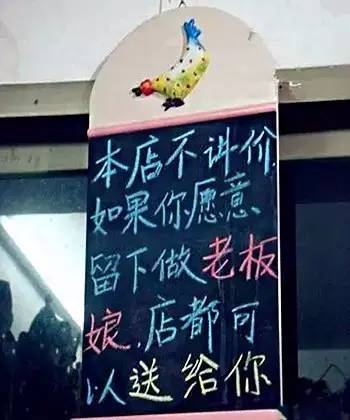 本店不讲价
如果你愿意
留下做老板
娘.店都可
以送给你